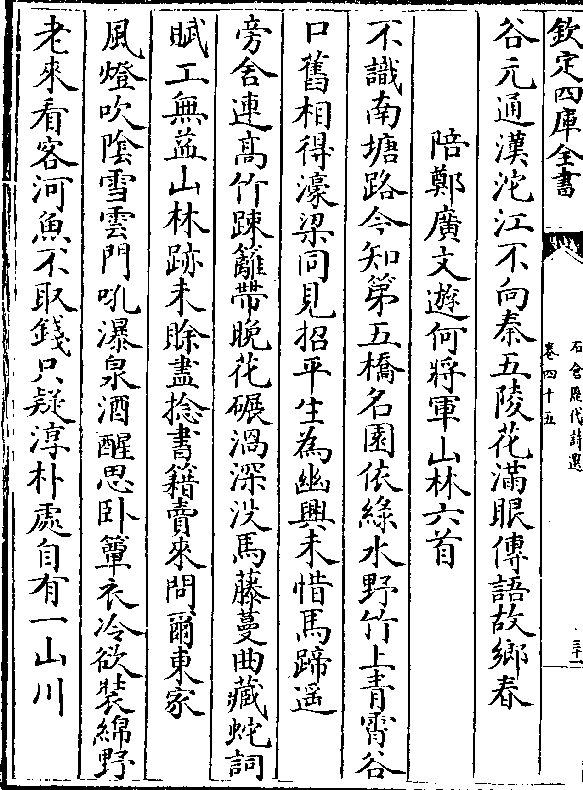 欽定四庫全書
石倉歷代詩選
卷四十五
三十一
谷元通漢沱江不向秦五陵花滿眼傳語故鄉春
陪鄭廣文遊何將軍山林六首
不識南塘路今知第五橋名園依綠水野竹上青霄谷
口舊相得濠梁同見招平生為幽興未惜馬蹄遥
旁舍連高竹踈籬帶晚花碾渦深没馬藤蔓曲藏蛇詞
賦工無益山林跡未賒盡捻書籍賣來問爾東家
風燈吹陰雪雲門吼瀑泉酒醒思卧簟衣冷欲裝綿野
老來看客河魚不取錢只疑淳朴處自有一山川